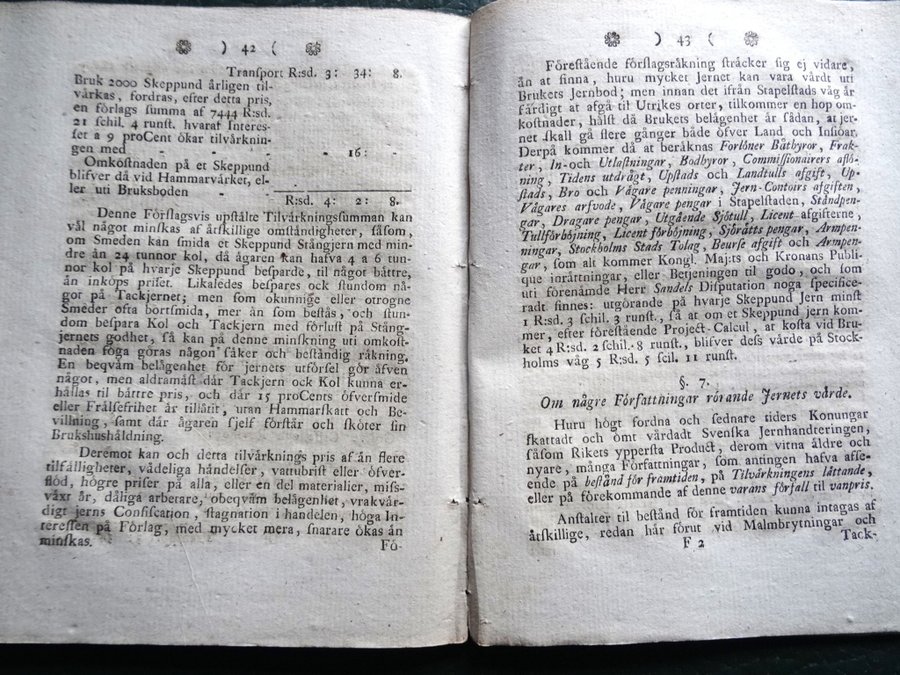 ) 42 (
Transport R:sd. 3: 34: 8.
Bruk 2000 Skeppund årligen til-
vårkas, fordras, efter detta pris,
en förlags summa af 7444 R:sd.
21 schil. 4 runst. hvaraf Interes-
set a 9 proCent ökar tilvårknin-
gen med - - - 16: -
Omkostnaden på et Skeppund
blifver då vid Hammarvårket, el-
ler uti Bruksboden -
R:sd. 4: 2: 8.
Denne Förslagsvis upstålte Tilvårkningssumman kan
vål något minskas af åtskillige omståndigheter, såsom,
om Smeden kan smida et Skeppund Stångjern med min-
dre ån 24 tunnor kol, då ågaren kan hafva 4 a 6 tun-
nor kol på hvarje Skeppund besparde, til något båttre,
ån inköps priset. Likaledes bespares ock stundom nå-
got på Tackjernet; men som okunnige eller otrogne
Smeder ofta bortsmida, mer ån som bestås, och stun-
dom bespara Kol och Tackjern med förlust på Stång-
jernets godhet, så kan på denne minskning uti omkost-
naden föga göras någon såker och beståndig råkning.
En beqvåm belågenhet för jernets utförsel gör åfven
något, men aldramåst dår Tackjern ock Kol kunna er-
hållas til båttre pris, och dår 15 proCents öfversmide
eller Frålsefrihet år tillåtit, utan Hammarskatt och Be-
villning, samt dår ågaren sjelf förstår och sköter sin
Brukshushåldning.
Deremot kan och detta tilvårknings pris af ån flere
tilfålligheter, vådeliga håndelser, vattubrist eller öfver-
flöd, högre priser på alla, eller en del materialier, miss-
våxt år, dåliga arbetare, obeqvåm belågenhet, vrakvår-
digt jerns Confiscation, stagnation i handelen, höga In-
teressen på Förlag, med mycket mera, snarare ökas ån
minskas.
Fö-
) 43 (
Förestående förslagsråkning stråcker sig ej vidare,
ån at finna, huru mycket Jernet kan vara vårdt uti
Brukets Jernbod; men innan det ifrån Stapelstads våg år
fårdigt at afgå til Utrikes orter, tilkommer en hop om-
kostnader, hålst då Brukets belågenhet år sådan, at jer-
net skall gå flere gånger både öfver Land och Insiöar.
Derpå kommer då at beråknas Forlöner Båthyror, Frak-
ter, In- och Utlastningar, Bodhyror, Commissionairers aflö-
ning, Tidens utdrågt, Upstads och Landtulls afgift, Up-
stads, Bro och Vågare penningar, Jern-Contoirs afgiften,
Vågares arfvode, Vågare pengar i Stapelstaden, Ståndpen-
gar, Dragare pengar, Utgående Sjötull, Licent afgifterne,
Tullförhöjning, Licent förhöjning, Sjörätts pengar, Armpen-
ningar, Stockholms Stads Tolag, Beurse afgift och Armpen-
gar, som alt kommer Kongl. Maj:ts och Kronans Publi-
que inråttningar, eller Betjeningen til godo, och som
uti förenåmde Herr Sandels Disputation noga specifice-
radt finnes: utgörande på hvarje Skeppund Jern minst
1 R:sd. 3 schil. 3 runst., så at om et Skeppund jern kom-
mer, efter förestående Project-Calcul, at kosta vid Bru-
ket 4 R:sd. 2 schil. 8 runst., blifver dess vårde på Stock-
holms våg 5 R:sd. 5 scil. 11 runst.
§. 7.
Om någre Författningar rörande Jernets vårde.
Huru högt fordna och sednare tiders Konungar
skattadt och ömt vårdadt Svenska Jernhandteringen,
såsom Rikets yppersta Product, derom vitna åldre och
nyare, många Författningar, som antingen hafva afse-
ende på bestånd för framtiden, på Tilvårkningens låttande,
eller på förekommande af denne varans förfall til vanpris.
Anstalter til bestånd för framtiden kunna intagas af
åtskillige, redan hår förut vid Malmbrytningar och
F 2
Tack-